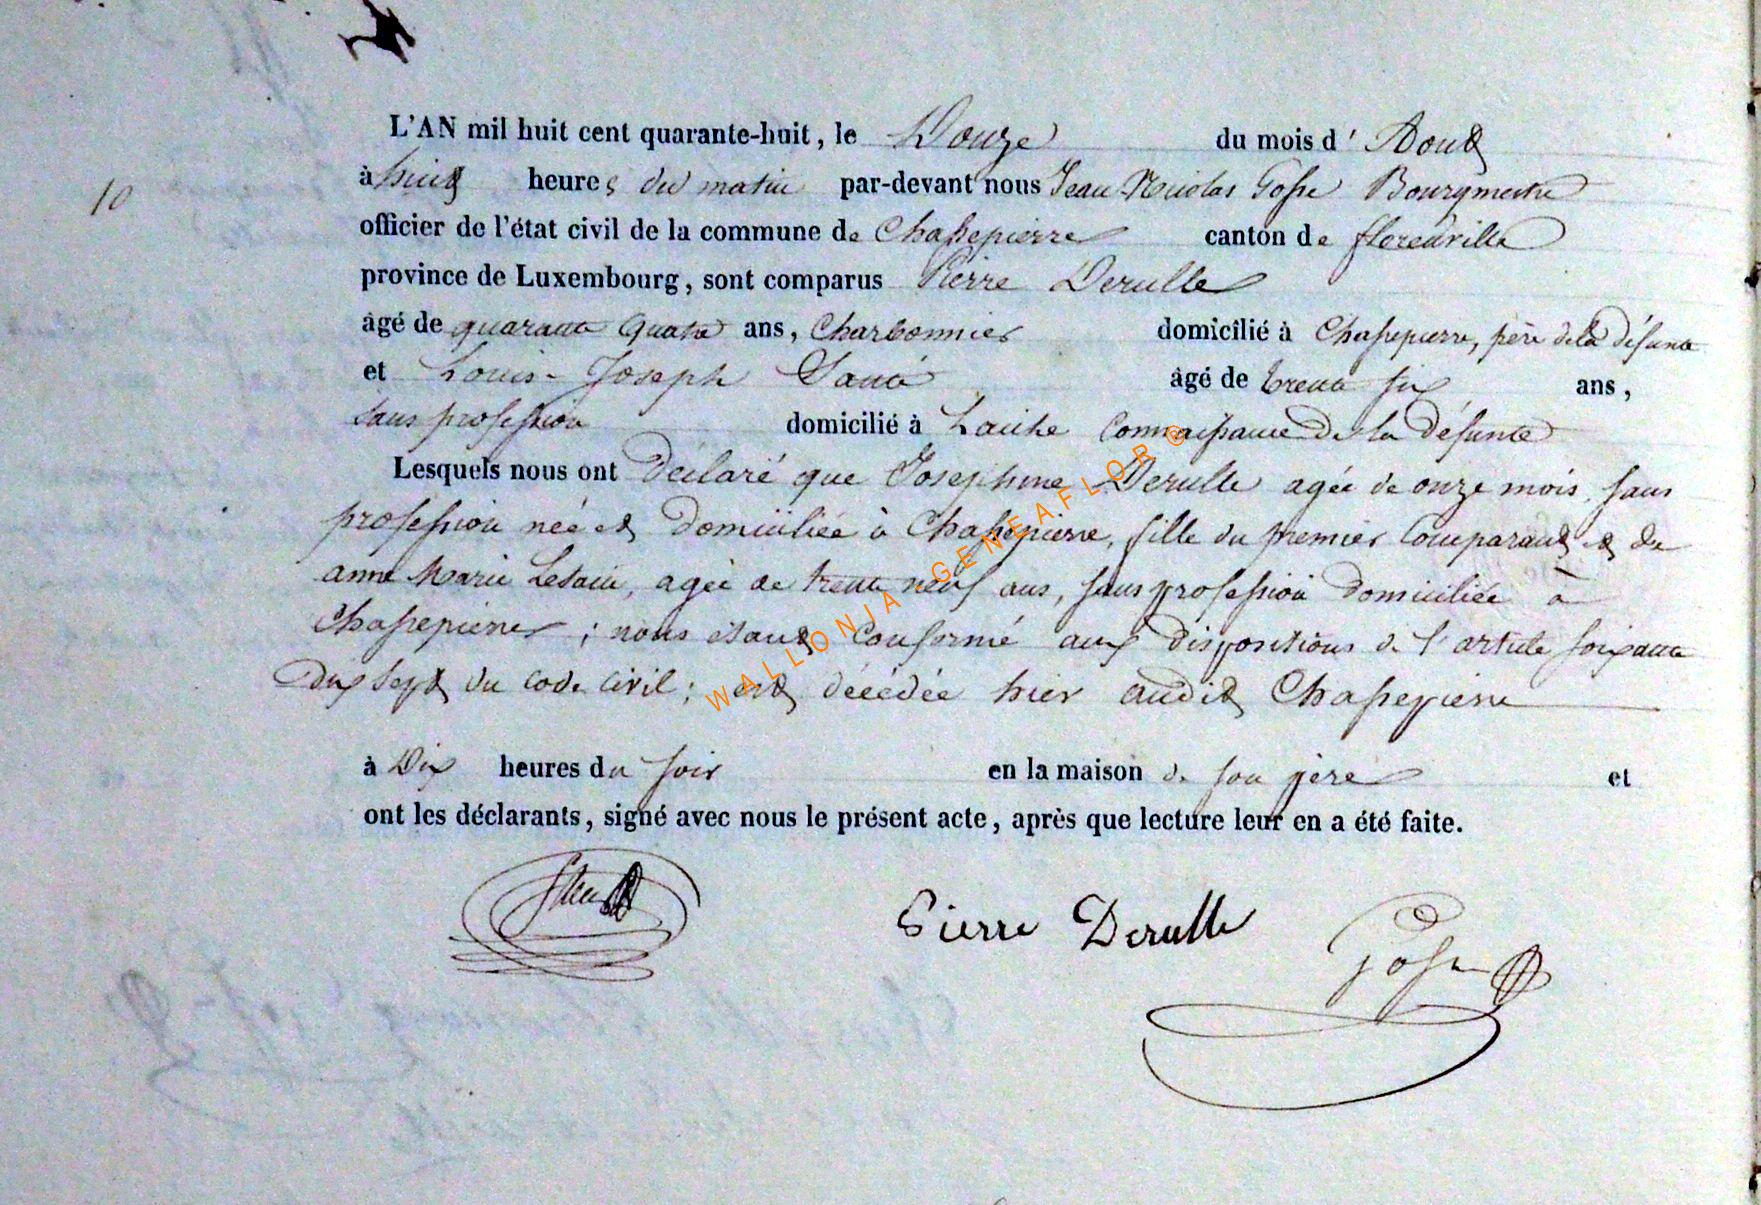 10
L'AN mil huit cent quarante-huit, le Douze du mois d' Aout
à huit heures du matin par-devant nous Jean Nicolas Gosse Bourgmestre
officier de l'état civil de la commune de Chassepierre canton de florenville
province de Luxembourg, sont comparus Pierre Derulle
âgé de quarante quatre ans, Charbonnier domicilié à Chassepierre, père de la défunte
et Louis-Joseph âgé de trente six ans,
sans profession domicilié à Laiche Connaissance de la défunte
Lesquels nous ont Déclaré que Josephine Derulle agée de onze mois, sans
profession née et Domiciliée à Chassepierre, fille du premier Comparant et de
anne Marie agée de trente neuf ans, sans profession Domiciliée à
Chassepierre ; nous étant Conformé aux Dispositions de l'article soixante
dix sept du code civil ; est décédée hier audit Chassepierre
à Dix heures du soir en la maison de son père et
ont les déclarants, signé avec nous le présent acte, après que lecture leur en a été faite.
Pierre Derulle
Gosse
WALLONIA GENEAFLOR ©